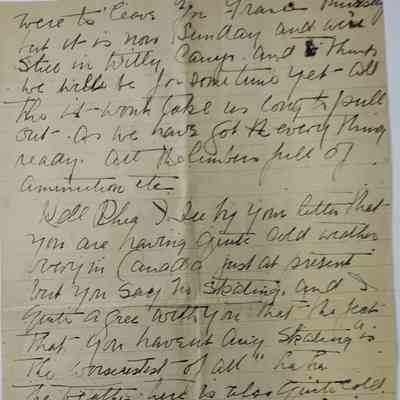 were to leave for France Thursday
but it is now Sunday and were
still in Witly Camp. and I think
we will be for sometime yet - all
tho it wont take us long to pull
out - as we have got everything
ready. all the limbers full of
aminution etc
Well I see by your letter that
you are having quite cold weather
over in Canada just at present
but you say no skating. and I
quite agree with you that the fact
that you havent any skating "is
the worsentest of all" ha ha
the weather here is also quite cold.